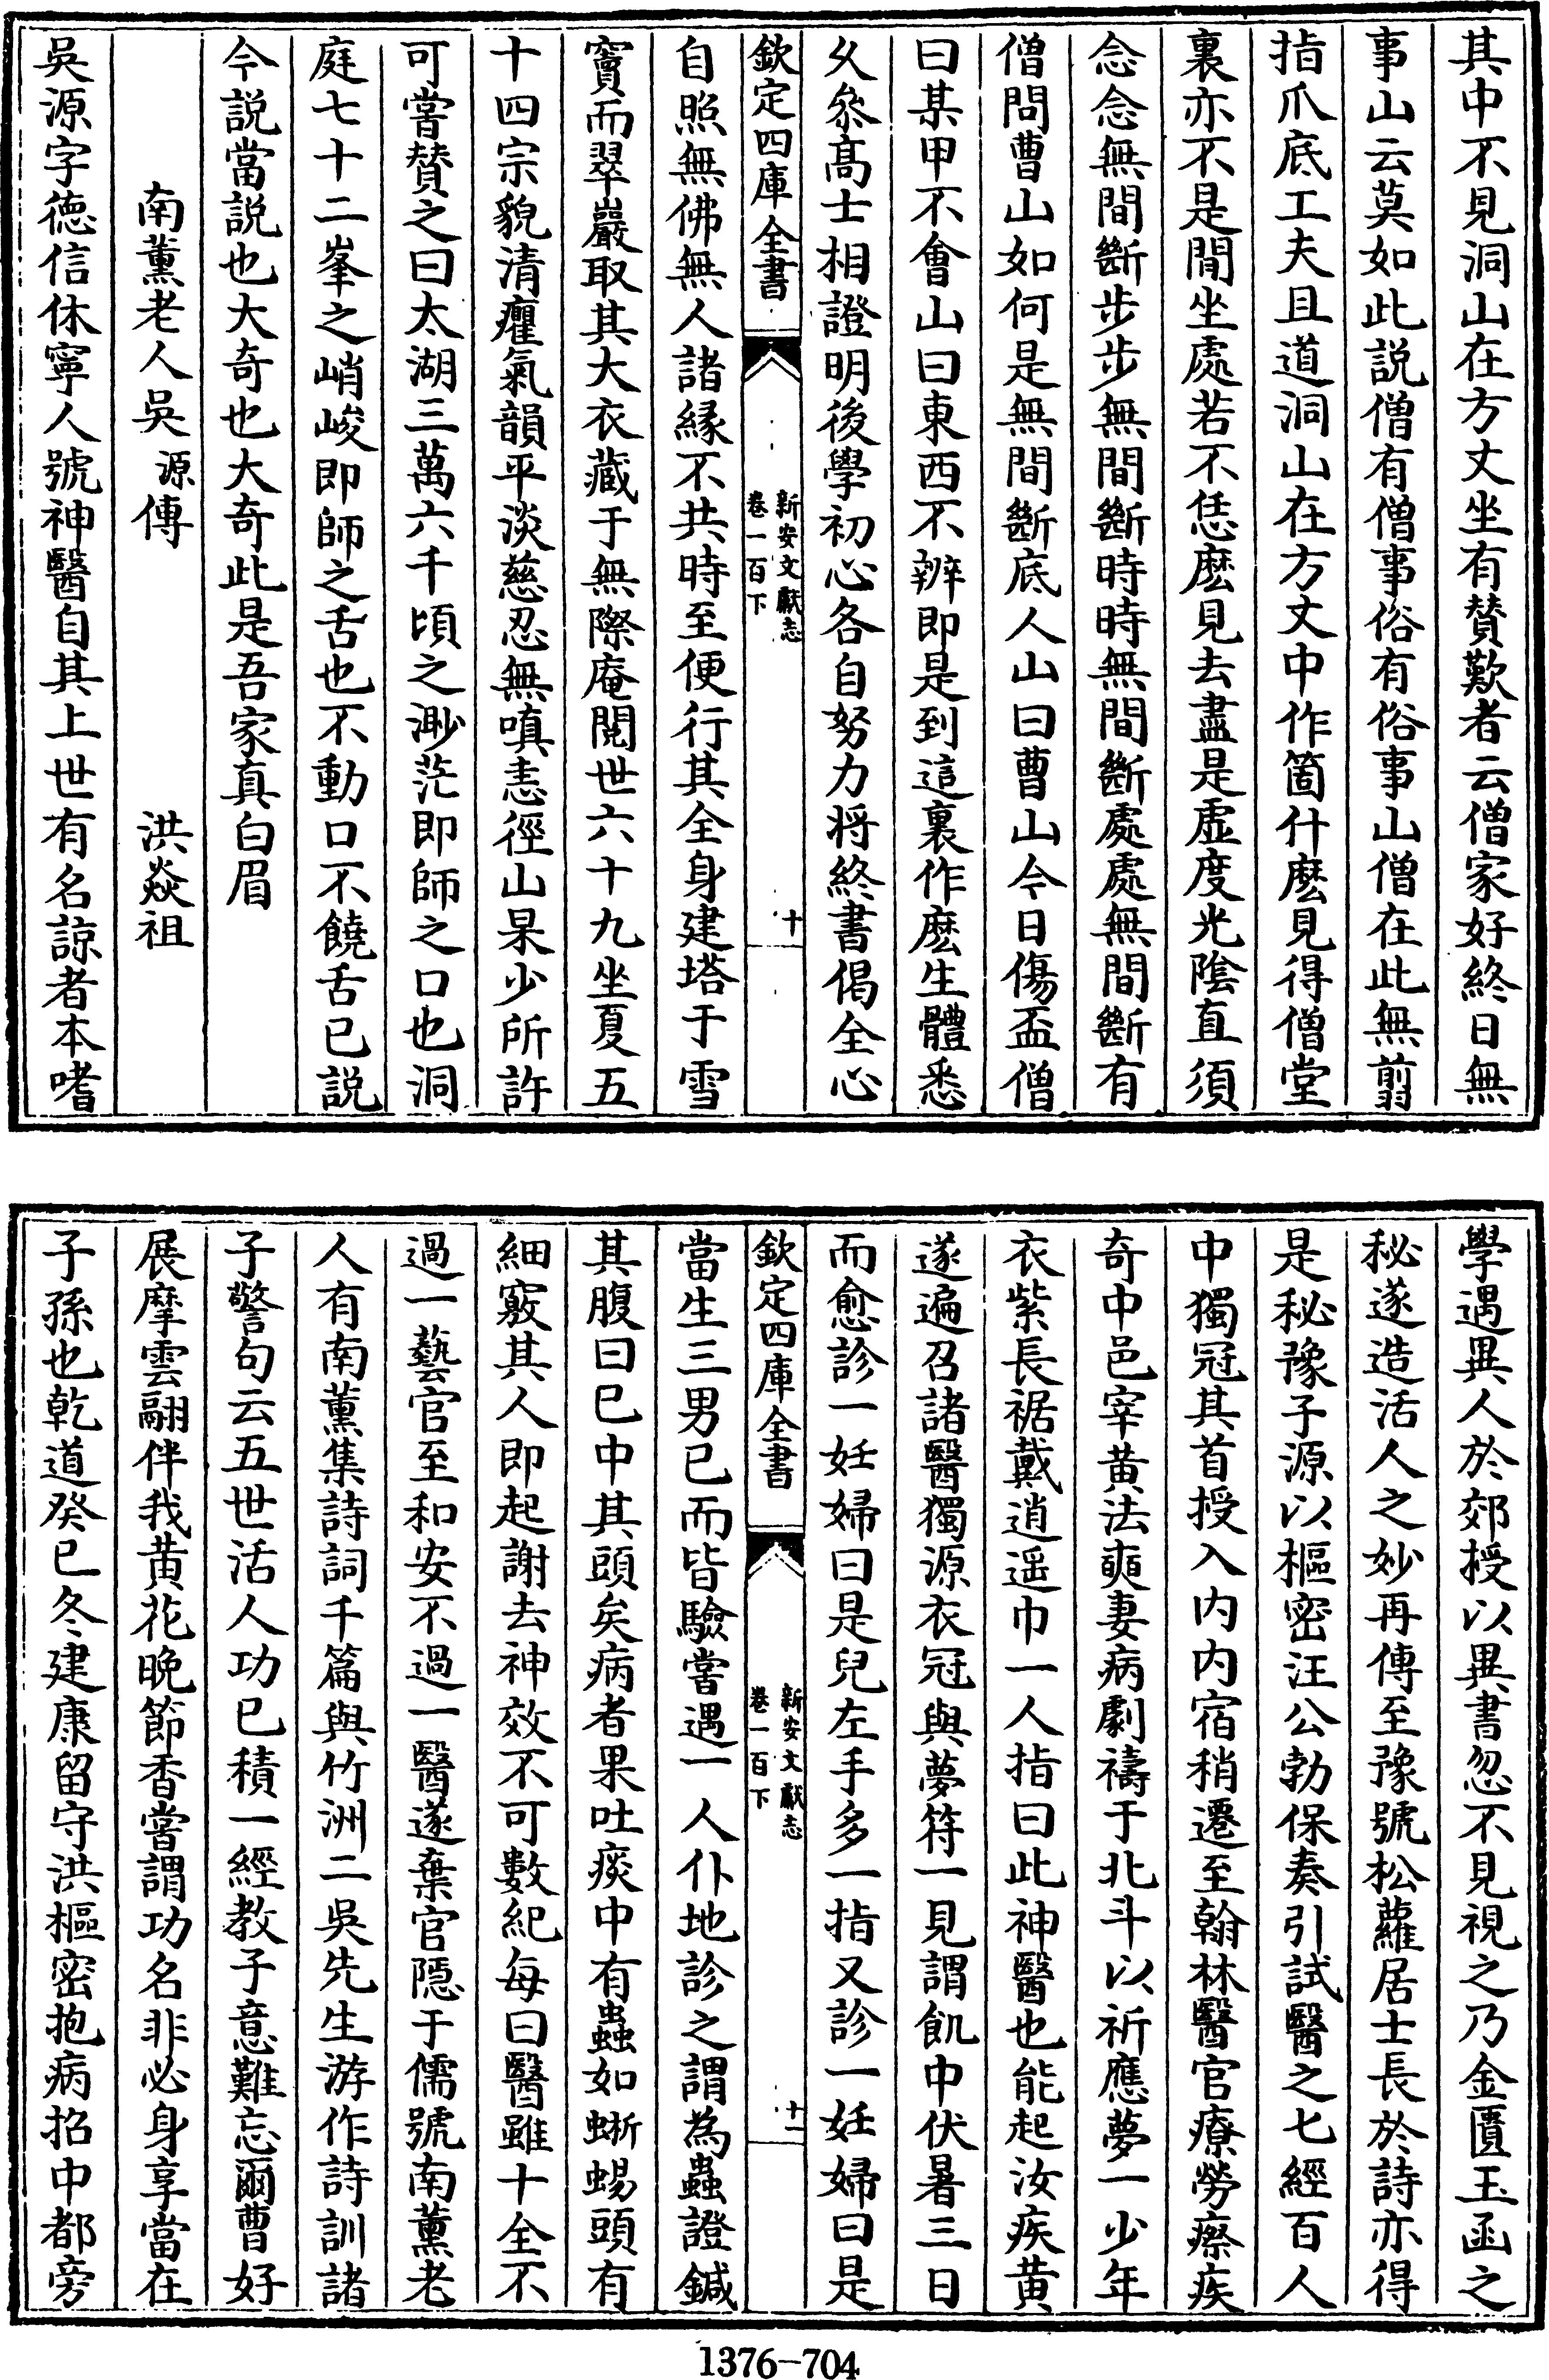 其中不見洞山在方丈坐有賛歎者云僧家好終日無
事山云莫如此説僧有僧事俗有俗事山僧在此無剪
指爪底工夫且道洞山在方丈中作箇什麽見得僧堂
裏亦不是閒坐處若不恁麽見去盡是虚度光陰直須
念念無間斷步步無間斷時時無間斷處處無間斷有
僧問曹山如何是無間斷底人山曰曹山今日傷盃僧
曰某甲不會山曰東西不辨即是到這裏作麽生體悉
久叅髙士相證明後學初心各自努力将終書偈全心
欽定四庫全書
新安文獻志
卷一百下
十
自照無佛無人諸縁不共時至便行其全身建塔于雪
竇而翠巖取其大衣藏于無際庵閲世六十九坐夏五
十四宗貌清癯氣韻平淡慈忍無嗔恚徑山杲少所許
可嘗賛之曰太湖三萬六千頃之渺茫即師之口也洞
庭七十二峯之峭峻即師之舌也不動口不饒舌已説
今説當説也大奇也大奇此是吾家真白眉
南薰老人吳源傳 洪焱祖
吳源字德信休寧人號神醫自其上世有名諒者本嗜
學遇異人於郊授以異書忽不見視之乃金匱玉函之
秘遂造活人之妙再傳至豫號松蘿居士長於詩亦得
是秘豫子源以樞密汪公勃保奏引試醫之七經百人
中獨冠其首授入内内宿稍遷至翰林醫官療勞瘵疾
奇中邑宰黄法奭妻病劇禱于北斗以祈應夢一少年
衣紫長裾戴逍遥巾一人指曰此神醫也能起汝疾黄
遂遍召諸醫獨源衣冠與夢符一見謂飢中伏暑三日
而愈診一妊婦曰是兒左手多一指又診一妊婦曰是
欽定四庫全書
新安文獻志
卷一百下
十一
當生三男已而皆驗嘗遇一人仆地診之謂為蟲證鍼
其腹曰已中其頭矣病者果吐痰中有蟲如蜥蜴頭有
細竅其人即起謝去神效不可數紀每曰醫雖十全不
過一藝官至和安不過一醫遂棄官隠于儒號南薰老
人有南薰集詩詞千篇與竹洲二吳先生游作詩訓諸
子警句云五世活人功已積一經教子意難忘爾曹好
展摩雲翮伴我黄花晚節香嘗謂功名非必身享當在
子孫也乾道癸巳冬建康留守洪樞密抱病招中都旁
1376-704